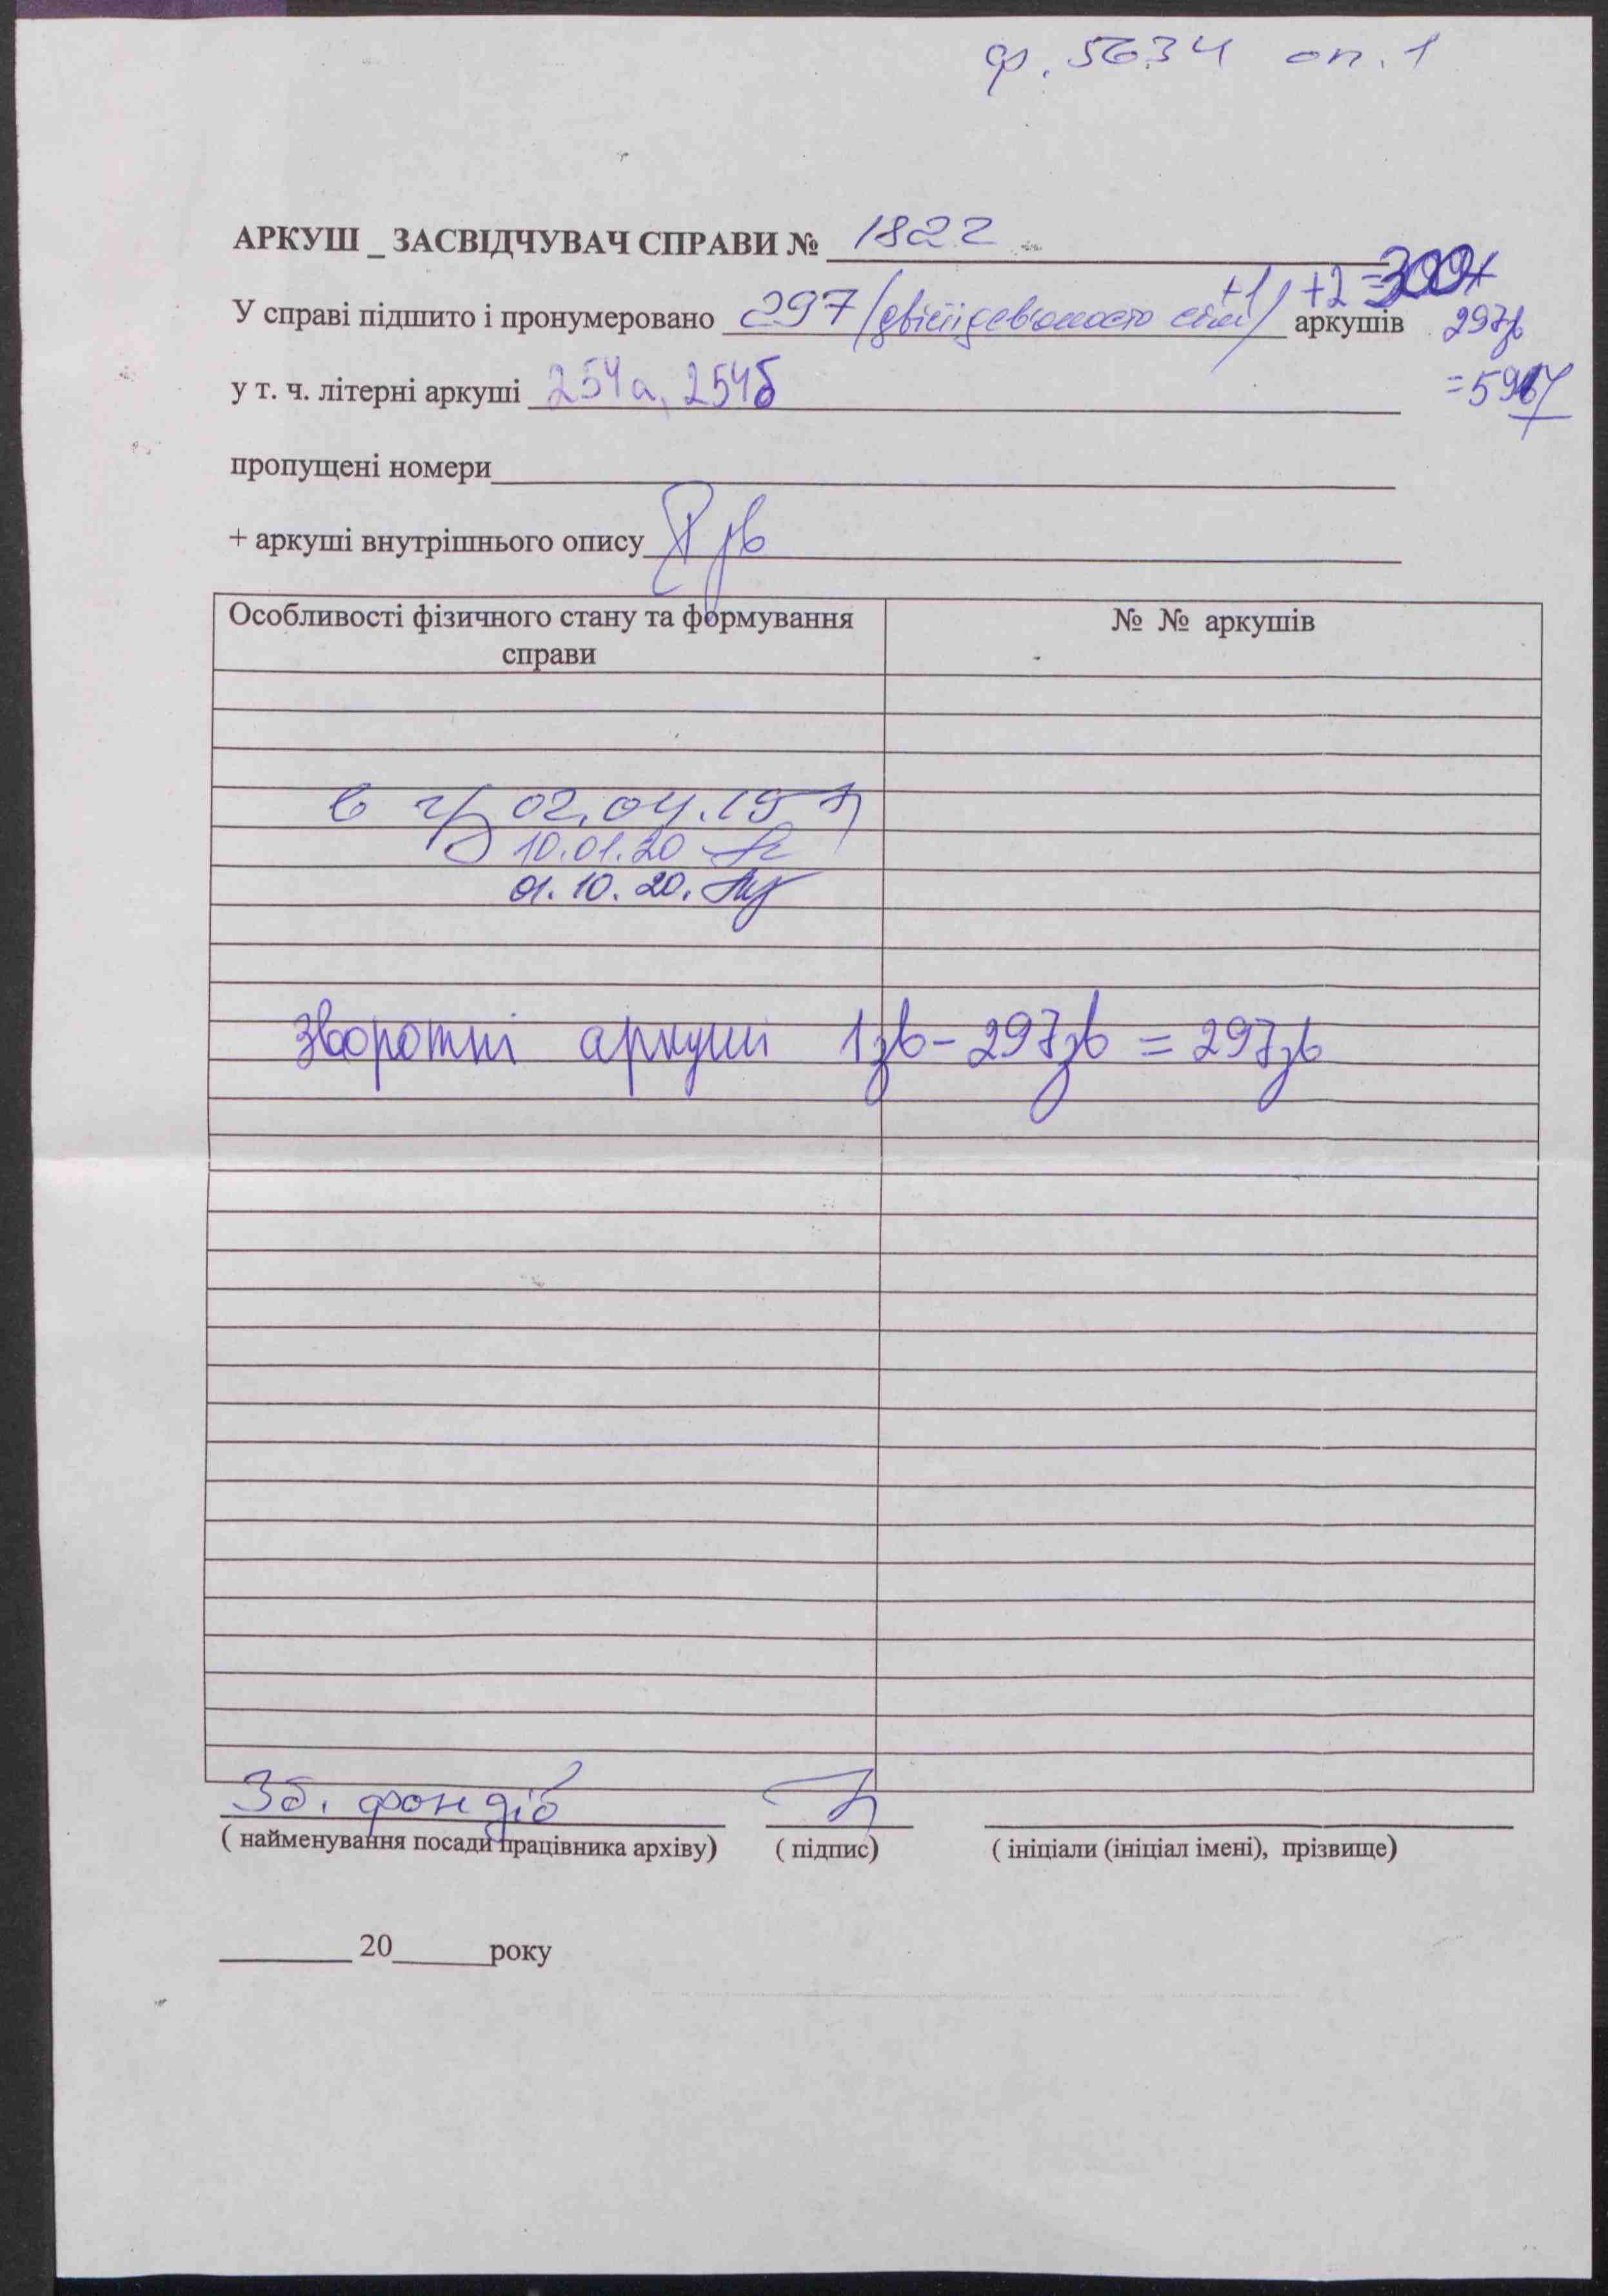 ф. 5634 оп. 1
АРКУШ _ ЗАСВІДЧУВАЧ СПРАВИ № 1822
У справі підшито і пронумеровано 297 /двісті девяносто сім/ +1 +2 = 300+ аркушів 297зв
у т. ч. літерні аркуші 254а, 254б = 597
пропущені номери
+ аркуші внутрішнього опису зв
Особливості фізичного стану та формування справи
№ № аркушів
02.04.19
10.01.20
01.10.20.
Зворотні аркуші 1зв - 297зв = 297зв
Зб. фондів
( найменування посади працівника архіву) ( підпис) ( ініціали (ініціал імені), прізвище)
20 року